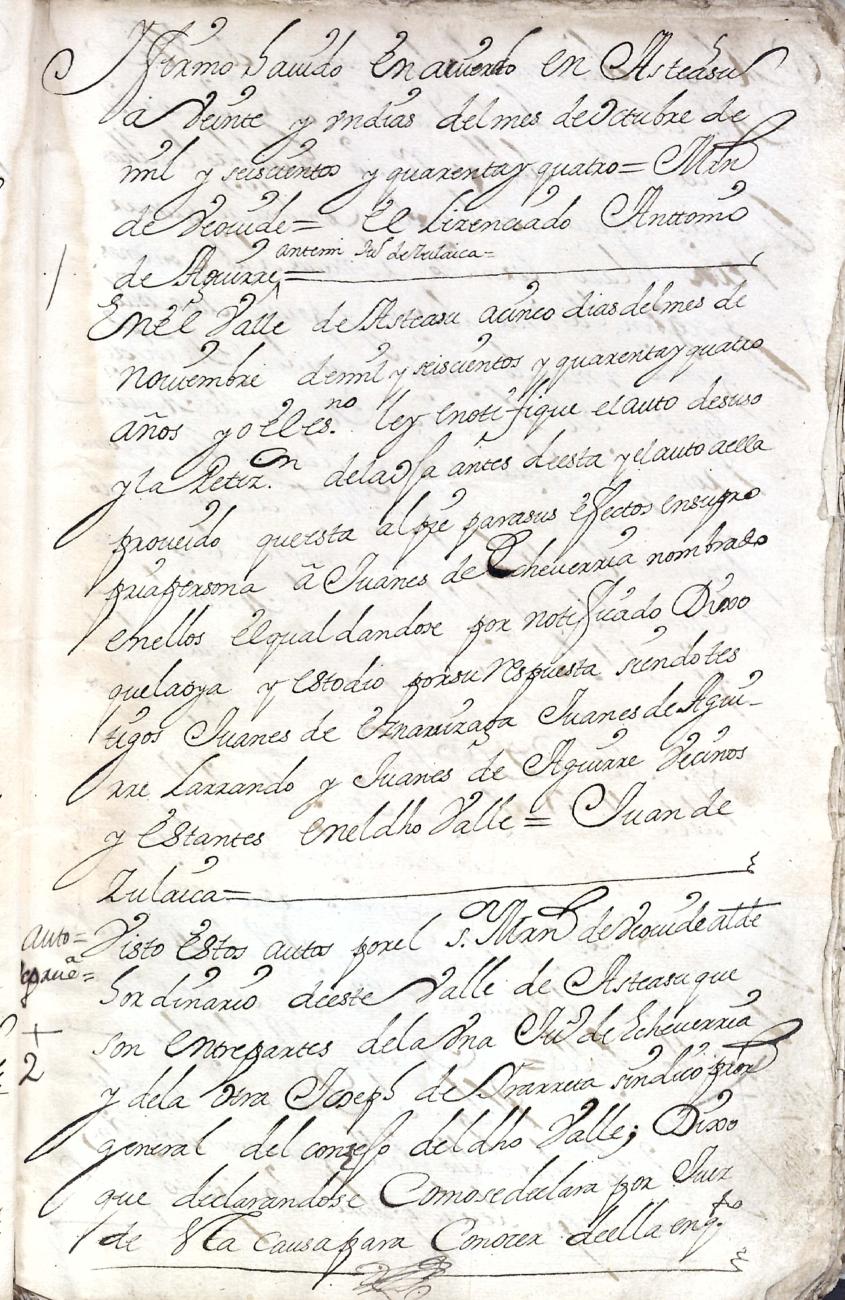 Y firmo havido en acuerdo en Asteasu
a veinte y un dias del mes de Octubre de
mil y seiscientos y quarenta y quatro = Mrn
de Veovide = El lizenciado Anttonio
antemi Ju.º de Zulaica =
de Aguirre =
En el Valle de Asteasu acinco dias del mes de
noviembre de mil y seiscientos y quarenta y quatro
años yo el es.no ley e notifique el auto desuso
y la Petiz.n dela Oja antes deesta y el auto aella
proveido questa alpie parasus efectos ensupro
pria persona a Juanes de Echeverria nombrado
enellos elqual dandose por notificado Dixo
quelaoya y esto dio porsu respuesta siendo tes
tigos Juanes de Juanes de Agui-
rre Larrando y Juanes de Aguirre Vecinos
y estantes eneldho Valle = Juan de
Zulaica =
auto =
deprueª =
+
2
Visto estos autos porel s.or Mrn de Veovide alde
hordinario deeste Valle de Asteasu que
son entrepartes dela una Ju.º de Echeverria
y dela otra Joseph de sindico pror
general del conzejo deldho Valle; Dixo
que declarandose Comosedeclara por Juez
de la causa para Conocer deella enq.to